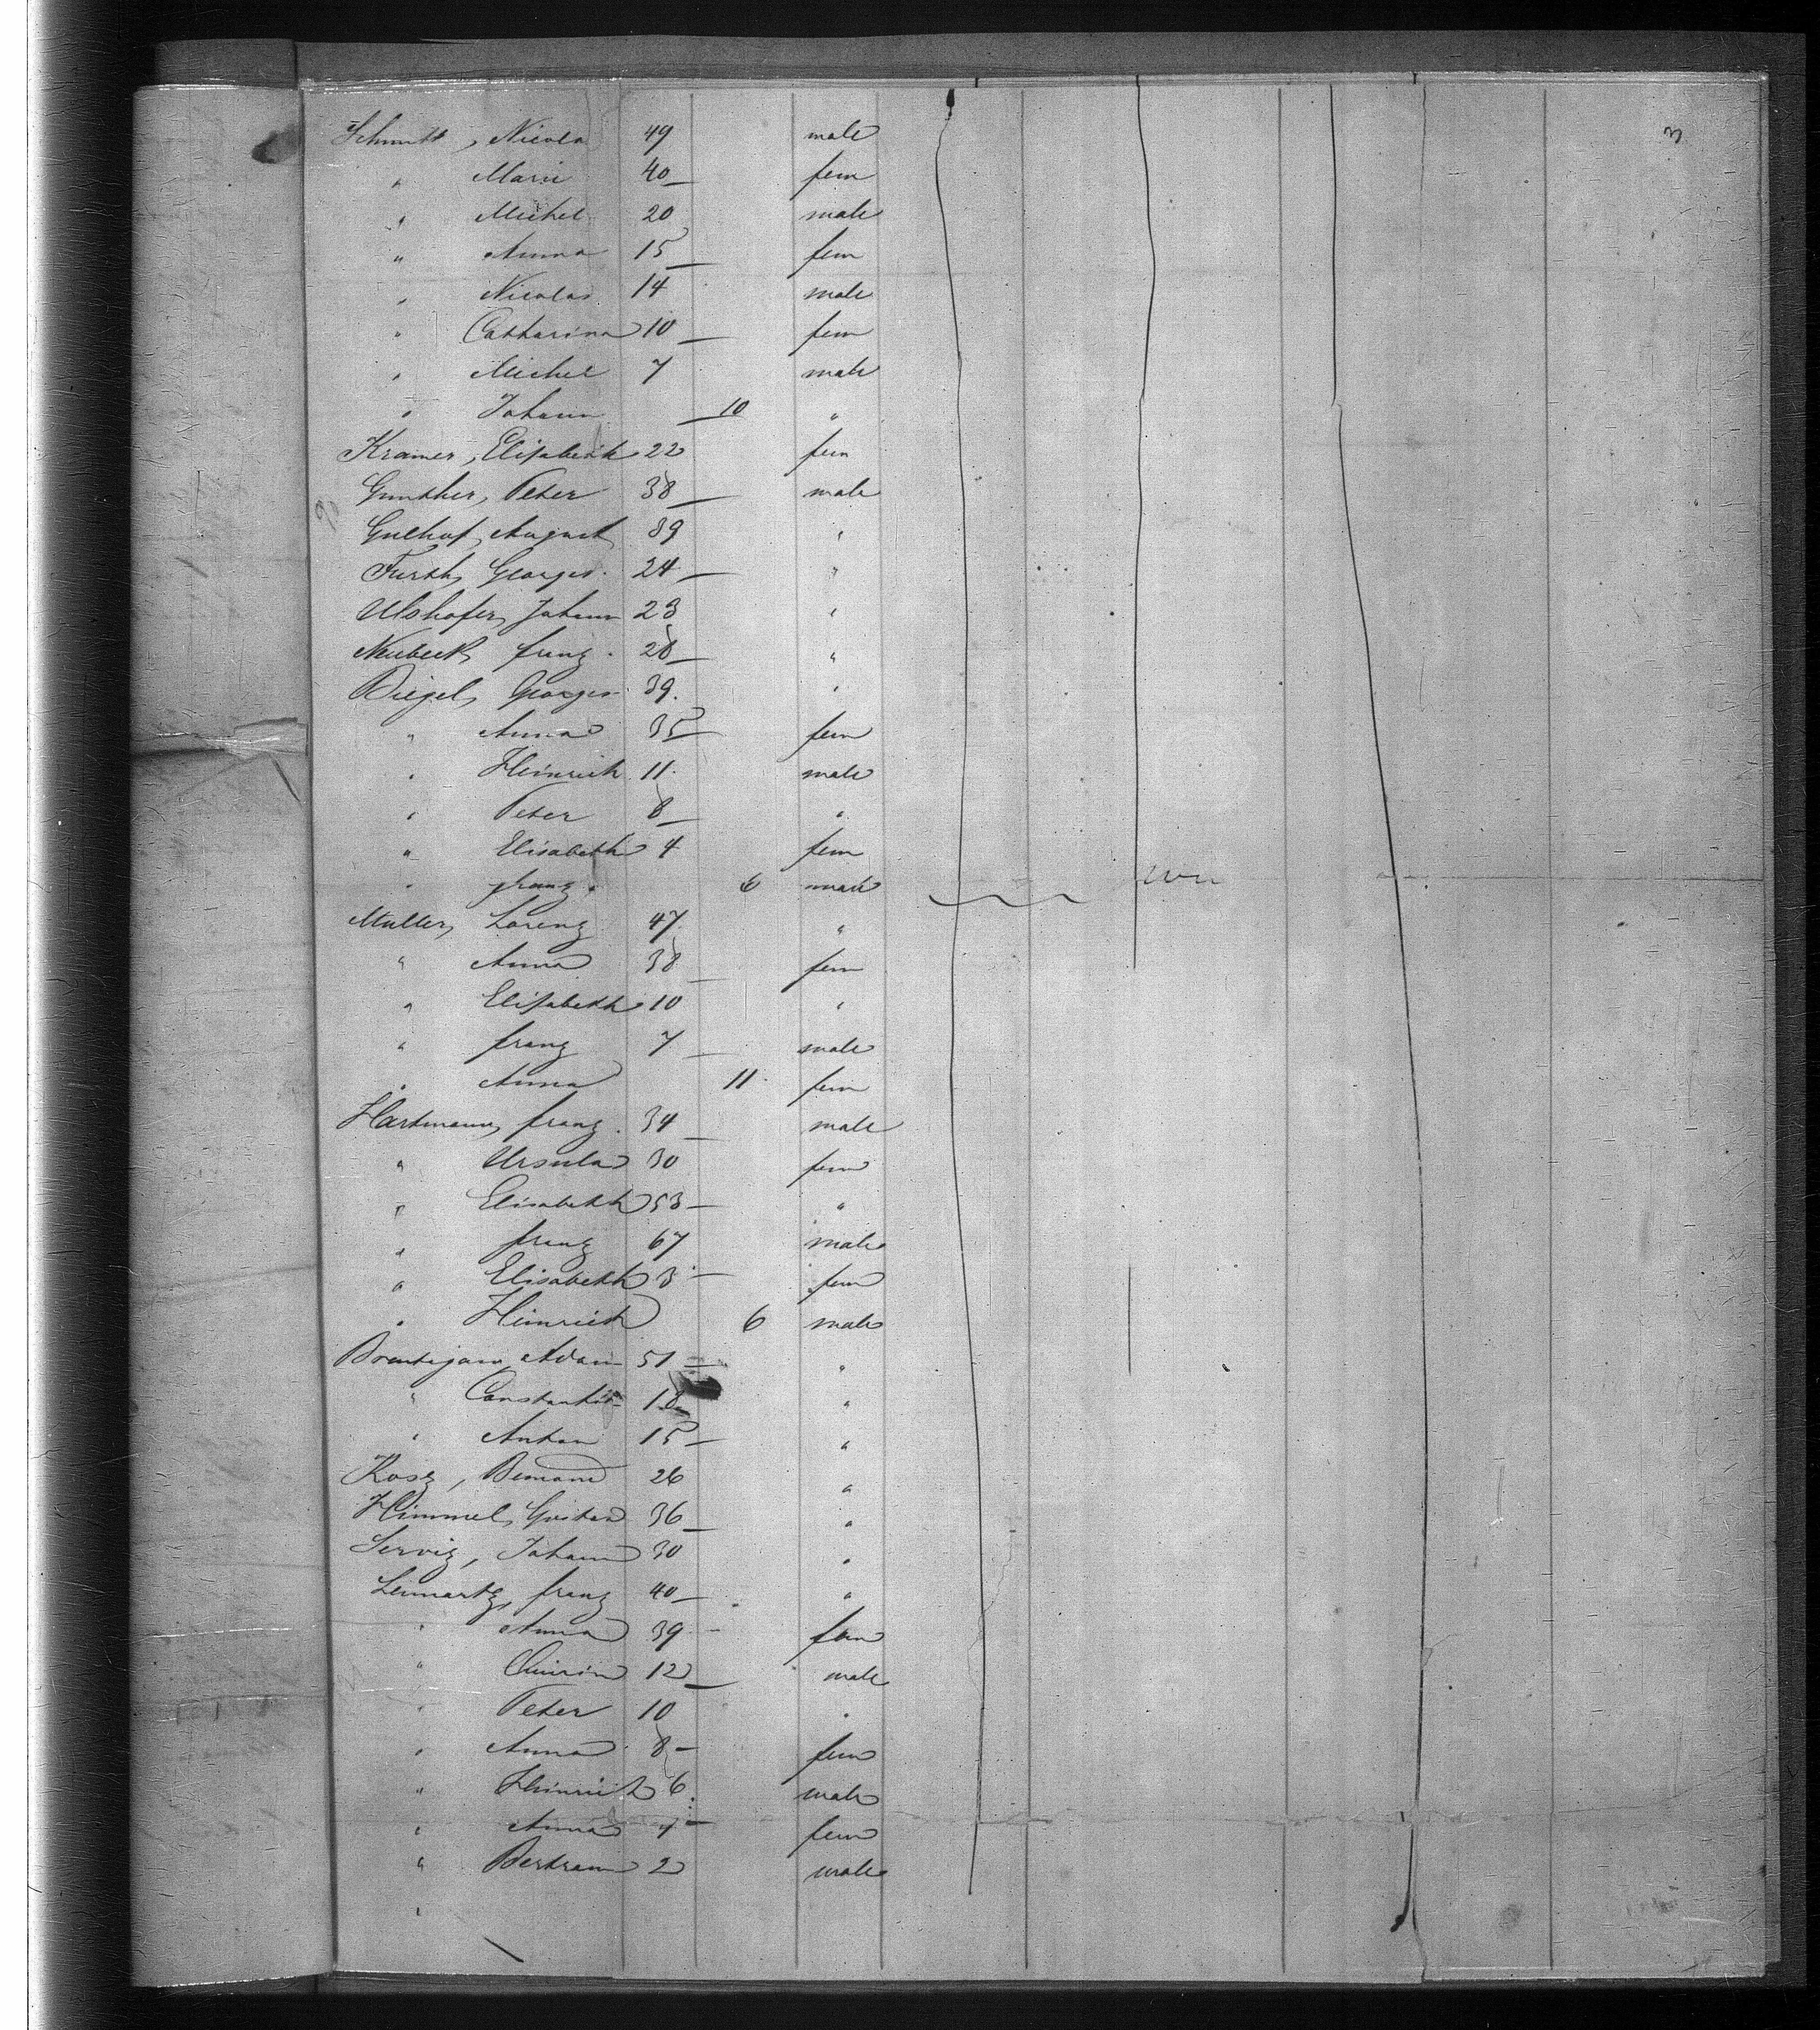 3
Schmitt, Nicola 49 male
" Marie 40 fem
" Michel 20 male
" Anna 15 fem
" Nicolas 14 male
" Catharina 10 fem
" Michel 7 male
" Johann 10 "
Kramer, Elisabeth 22 fem
Gunther, Peter 38 male
August 39 "
Furth, Georges 24 "
Ulshofer, Johann 23 "
Neubeck, franz 28 "
Biegel, Georges 39 "
" Anna 35 fem
" Heinrich 11 male
" Peter 8 "
" Elisabeth 4 fem
" franz 6 male
Muller, Lorenz 47 "
" Anna 38 fem
" Elisabeth 10 "
" franz 7 male
" Anna 11 fem
Hartmann, franz 34 male
" Ursula 30 fem
" Elisabeth 53 "
" franz 67 male
" Elisabeth 3 fem
" Heinrich 6 male
Adam 51 "
" Constantin 18 "
" Anton 15 "
26 "
Himmel, Gustav 36 "
Johann 30 "
franz 40 "
" Anna 39 fem
" Quirin 12 male
" Peter 10 "
" Anna 8 fem
" Heinrich 6 male
" Anna 4 fem
" Bertram 2 male
"